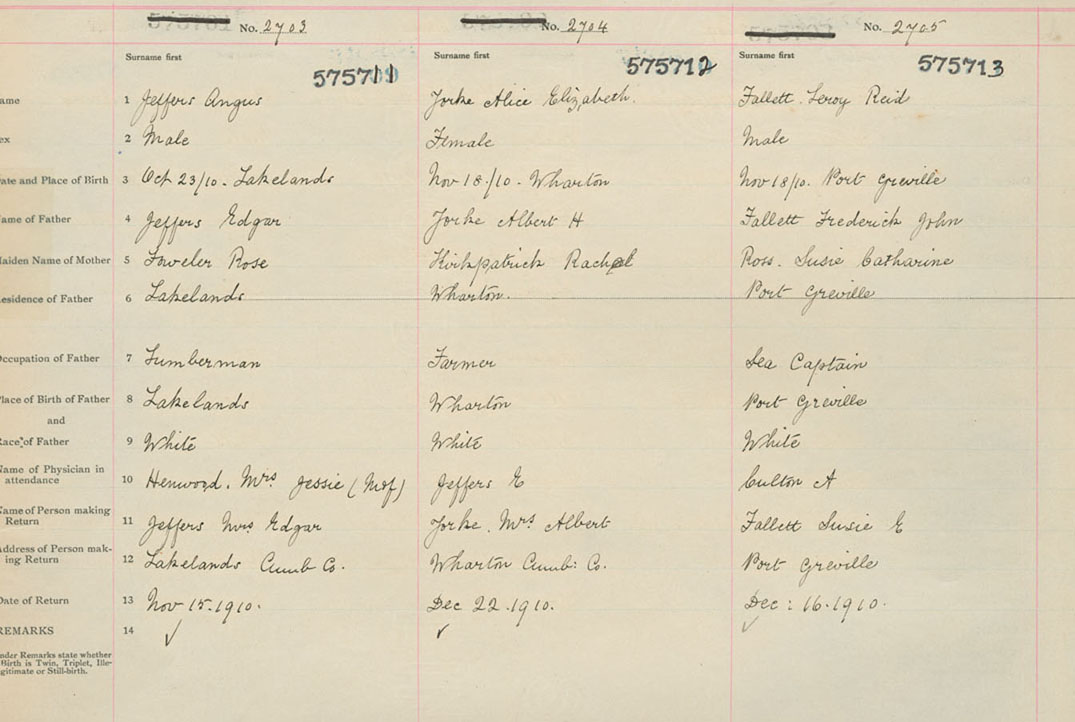 No. 2703 No. 2704 No. 2705
Surname first Surname first Surname first
575711 575712 575713
ame 1 Jeffers Angus Yorke Alice Elizabeth. Fallett. Leroy Reid
ex 2 Male Female Male
ate and Place of Birth 3 Oct 23/10. Lakelands Nov 18./10. Wharton Nov 18/10. Port Greville
ame of Father 4 Jeffers Edgar Yorke Albert H Fallett Frederick John
aiden Name of Mother 5 Fowler Rose Kirkpatrick Rachel Ross. Susie Catharine
esidence of Father 6 Lakelands Wharton. Port Greville
Occupation of Father 7 Lumberman Farmer Sea Captain
lace of Birth of Father 8 Lakelands Wharton Port Greville
and
Race of Father 9 White White White
Name of Physician in
attendance 10 Henwood. Mrs Jessie (Mf) Jeffers E Culton A
Name of Person making
Return 11 Jeffers Mrs Edgar Yorke. Mrs Albert Fallett Susie E
Address of Person mak-
ing Return 12 Lakelands Cumb Co. Wharton Cumb: Co. Port Greville
Date of Return 13 Nov 15.1910. Dec 22.1910. Dec: 16.1910.
REMARKS 14 ✓ ✓ ✓
nder Remarks state whether
Birth is Twin, Triplet, Ille-
gitimate or Still-birth.